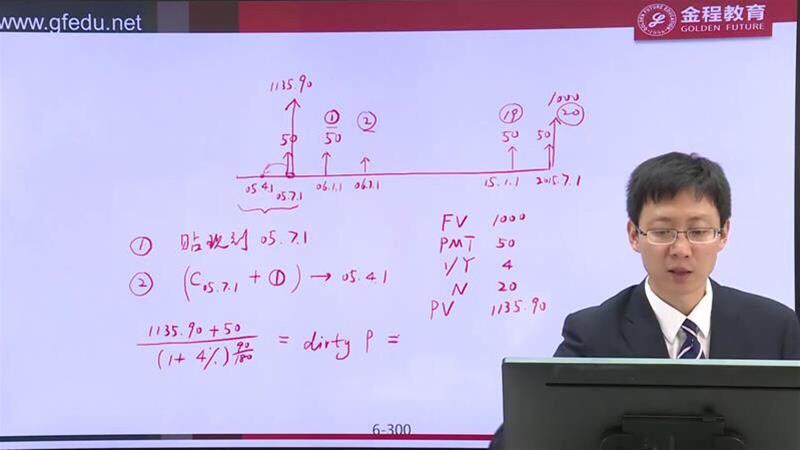 www.gfedu.net
金程教育
GOLDEN FUTURE
1135.90
1000
50 ① 50 ② ⑲ 50 50 ⑳
05.4.1 05.7.1 06.1.1 06.7.1 15.1.1 2015.7.1
① 贴现到 05.7.1
② (C05.7.1 + ①) → 05.4.1
(1135.90 + 50) / (1+4%)^(90/180) = dirty P =
FV 1000
PMT 50
I/Y 4
N 20
PV 1135.90
6-300